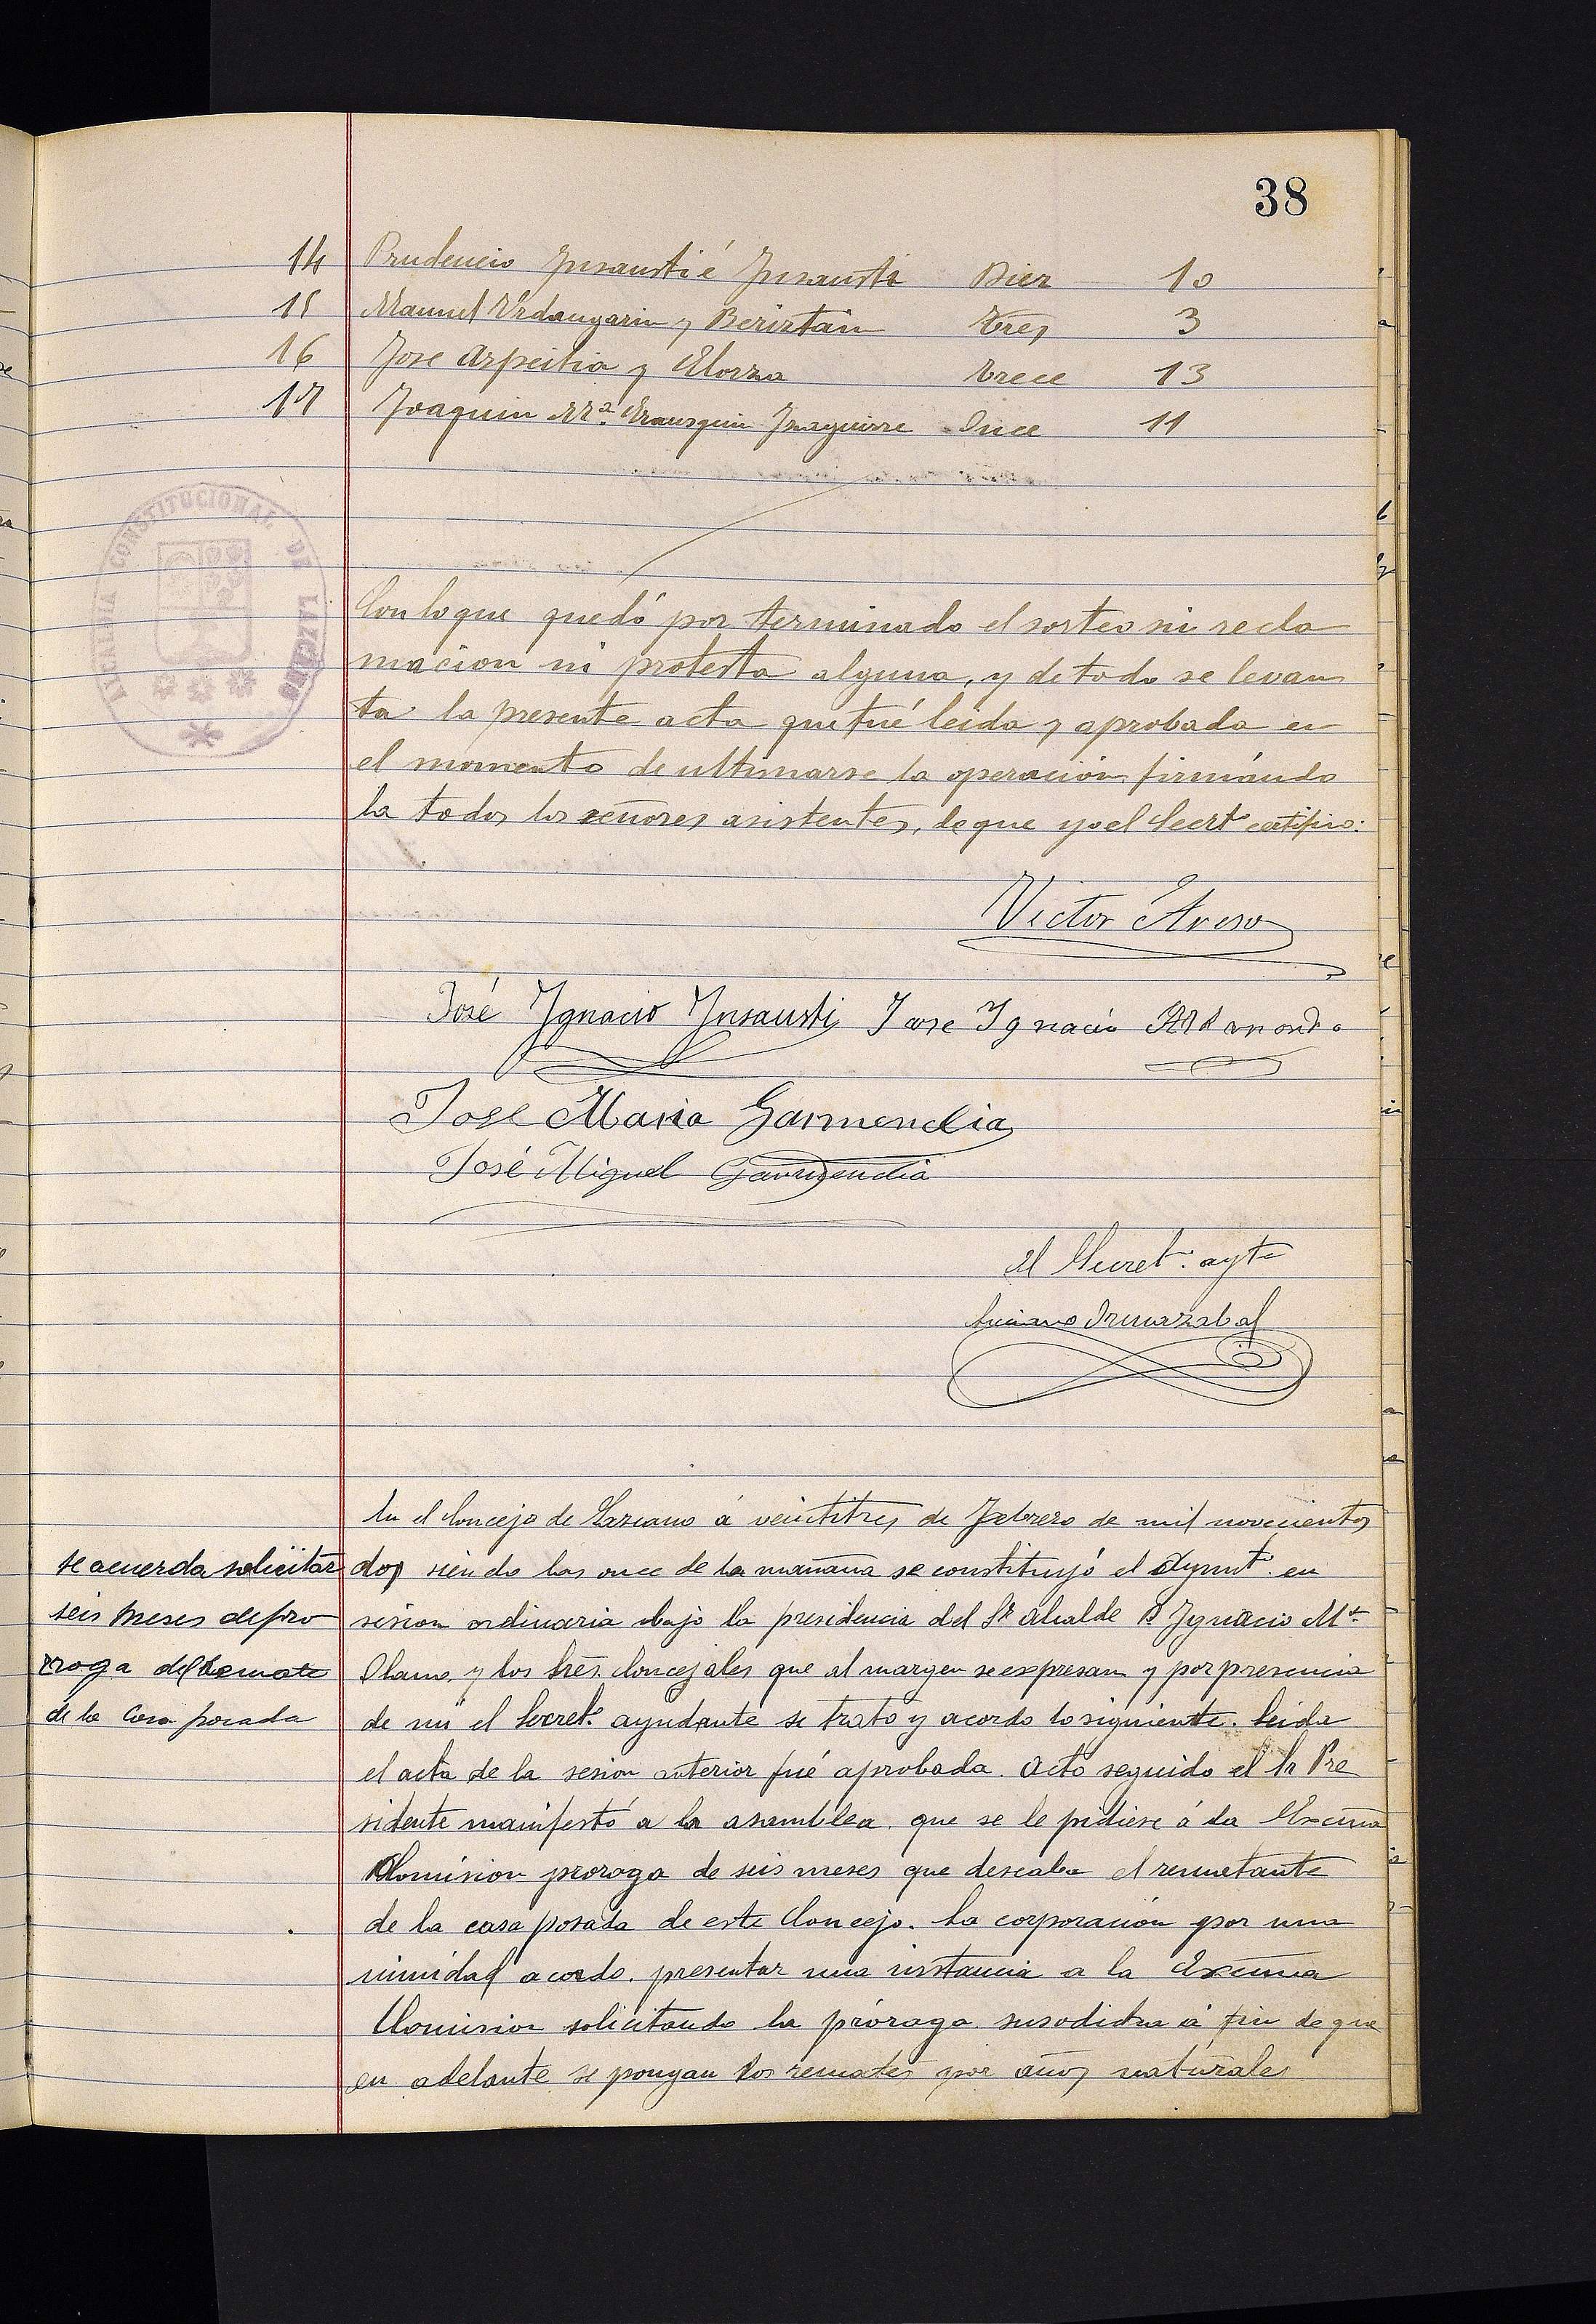 38
14 Prudencio Ynsausti é Ynsausti Diez 10
15 Manuel Urdangarin y Beriztain Tres 3
16 Jose Azpeitia y Elorza Trece 13
17 Joaquin Mª Yraguirre Once 11
ALCALDIA CONSTITUCIONAL DE LAZCANO
Con lo que quedó por terminado el sorteo ni recla
macion ni protesta alguna, y de todo se levan
ta la presente acta que fué leida y aprobada en
el momento de ultimarse la operación firmándo
la todos los señores asistentes, de que yo el Secrtº certifico:
Victor
José Ygnacio Ynsausti Jose Ygnacio
José Maria Garmendia
José Miguel Garmendia
El Secretº aytе
Luciano Ormazabal
En el Concejo de Lazcano á veintitres de Febrero de mil novecientos
se acuerda solicitar
seis meses de pro
rroga del remate
de la Casa posada
dos siendo las once de la mañana se constituyó el Ayuntº en
sesion ordinaria bajo la presidencia del Sr Alcalde D Ygnacio Mª
Olano y los Sres. Concejales que al margen se expresan y por presencia
de mi el Secretº ayudante se trato y acordo lo siguiente. Leida
el acta de la sesion anterior fué aprobada. Acto seguido el Sr Pre
sidente manifestó a la asamblea que se le pidiese á la Excma
Comision proroga de seis meses que deseaba el rematante
de la casa posada de este Concejo. La corporación por una
nimidad acordo presentar una instancia a la Excma
Comision solicitando la próroga susodicha á fin de que
en adelante se pongan los remates por años naturales